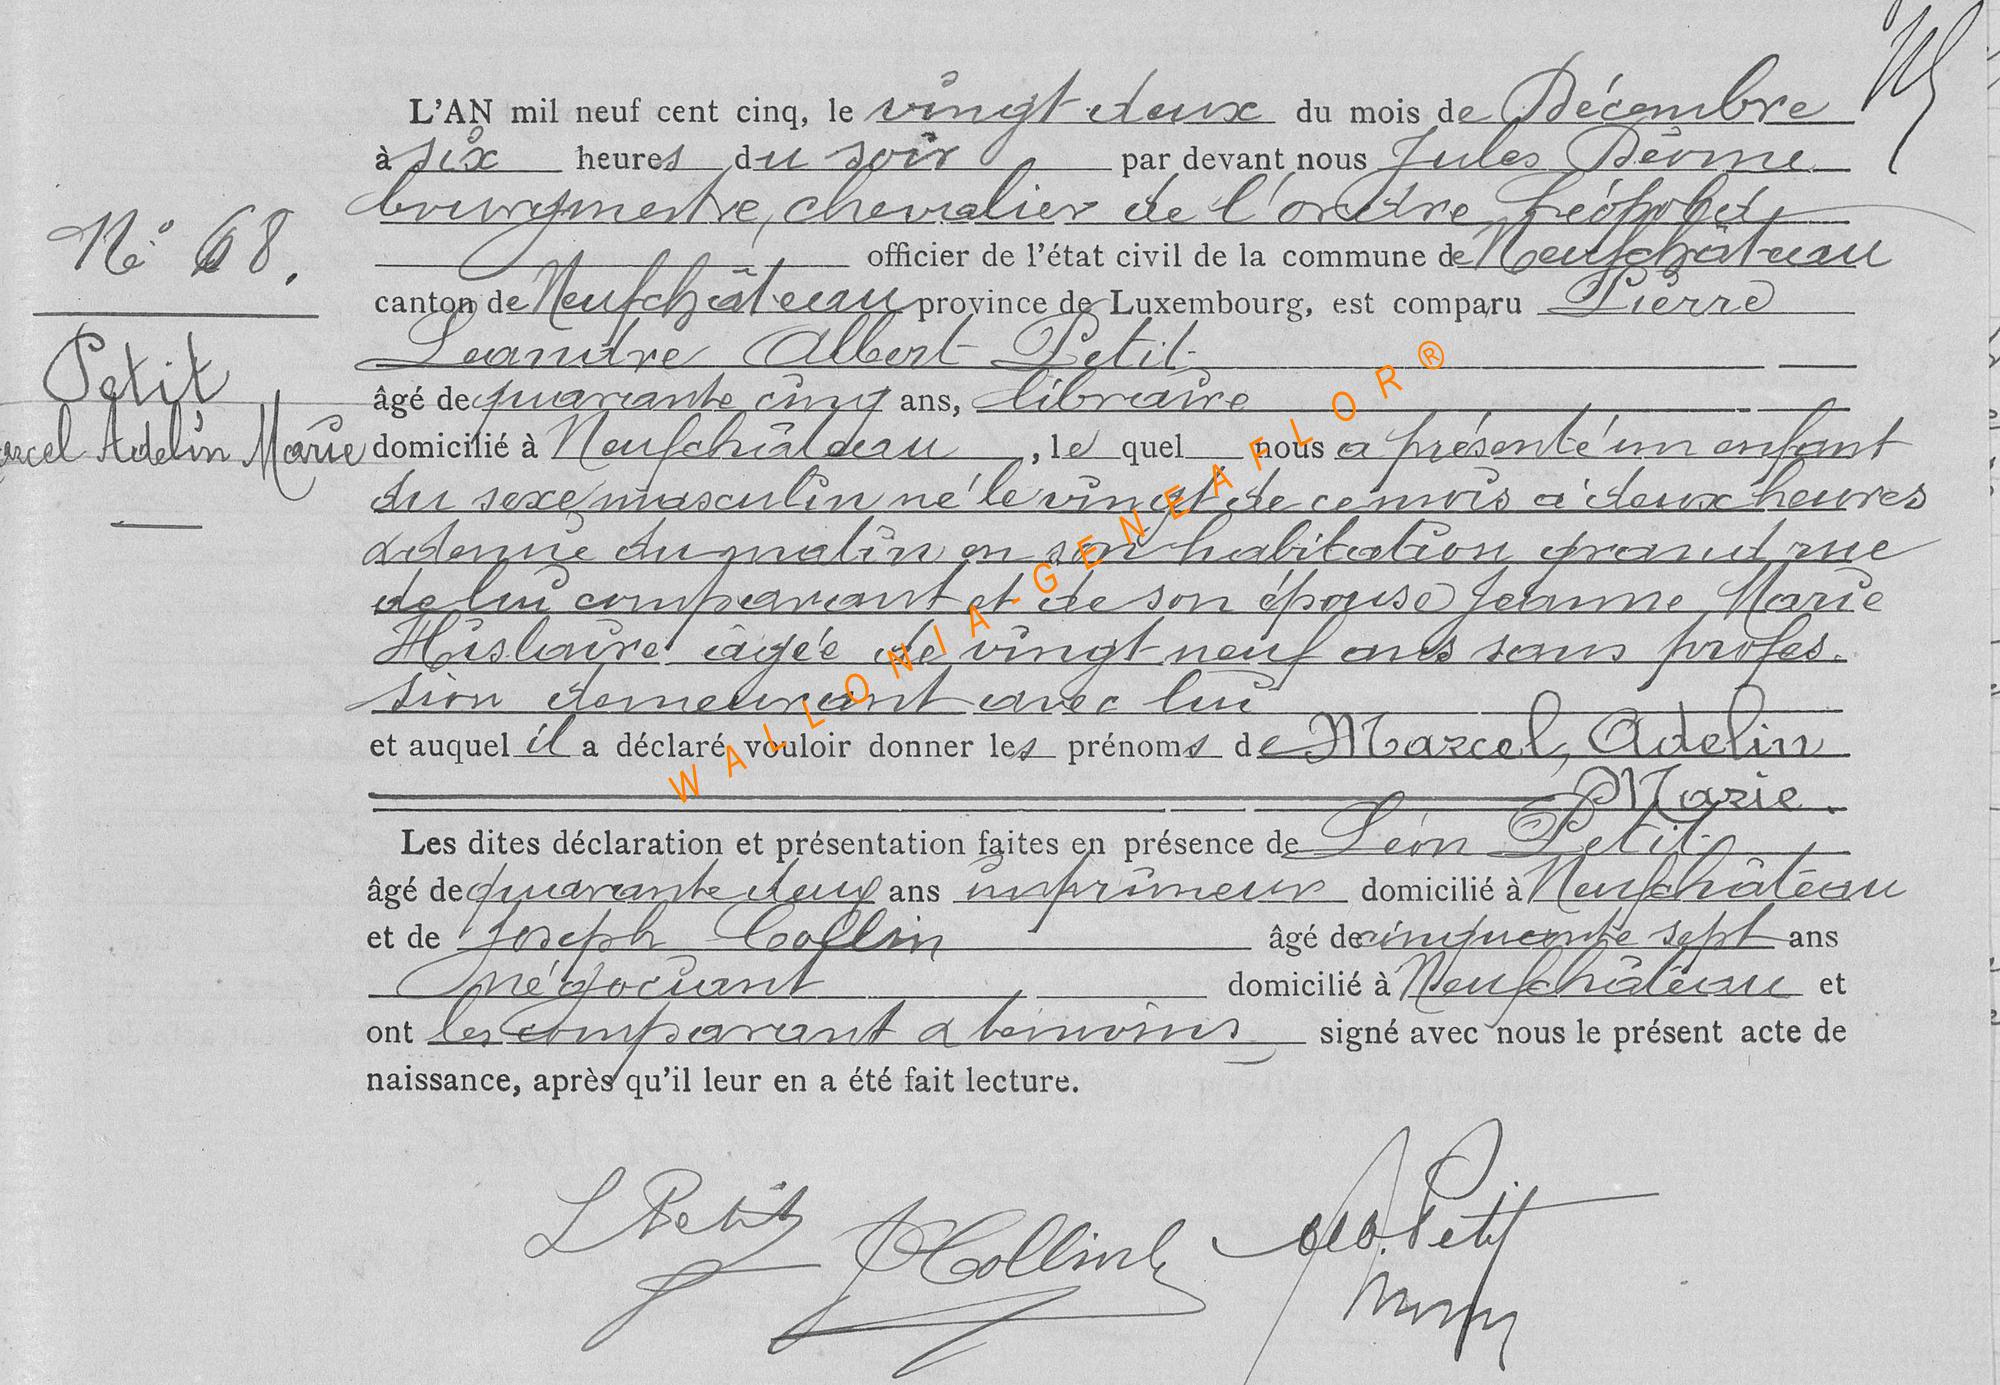 L'AN mil neuf cent cinq, le vingt deux du mois de Décembre
à six heures du soir par devant nous Jules
bourgmestre, chevalier de l'ordre Léopold
N° 68.
officier de l'état civil de la commune de Neufchâteau
canton de Neufchâteau province de Luxembourg, est comparu Pierre
Léandre Albert Petit
Petit
âgé de quarante cinq ans, libraire
Marcel Adelin Marie
domicilié à Neufchâteau, le quel nous a présenté un enfant
du sexe masculin né le vingt de ce mois à deux heures
& demie du matin en son habitation grand rue
de lui comparant et de son épouse Jeanne Marie
Hislaire âgée de vingt neuf ans sans profes-
sion demeurant avec lui
et auquel il a déclaré vouloir donner les prénoms de Marcel, Adelin
Marie.
Les dites déclaration et présentation faites en présence de Léon Petit
âgé de quarante deux ans imprimeur domicilié à Neufchâteau
et de Joseph Collin âgé de cinquante sept ans
négociant domicilié à Neufchâteau et
ont les comparant & témoins signé avec nous le présent acte de
naissance, après qu'il leur en a été fait lecture.
L Petit
J Collin
Petit
WALLONIA-GENEAFLOR®